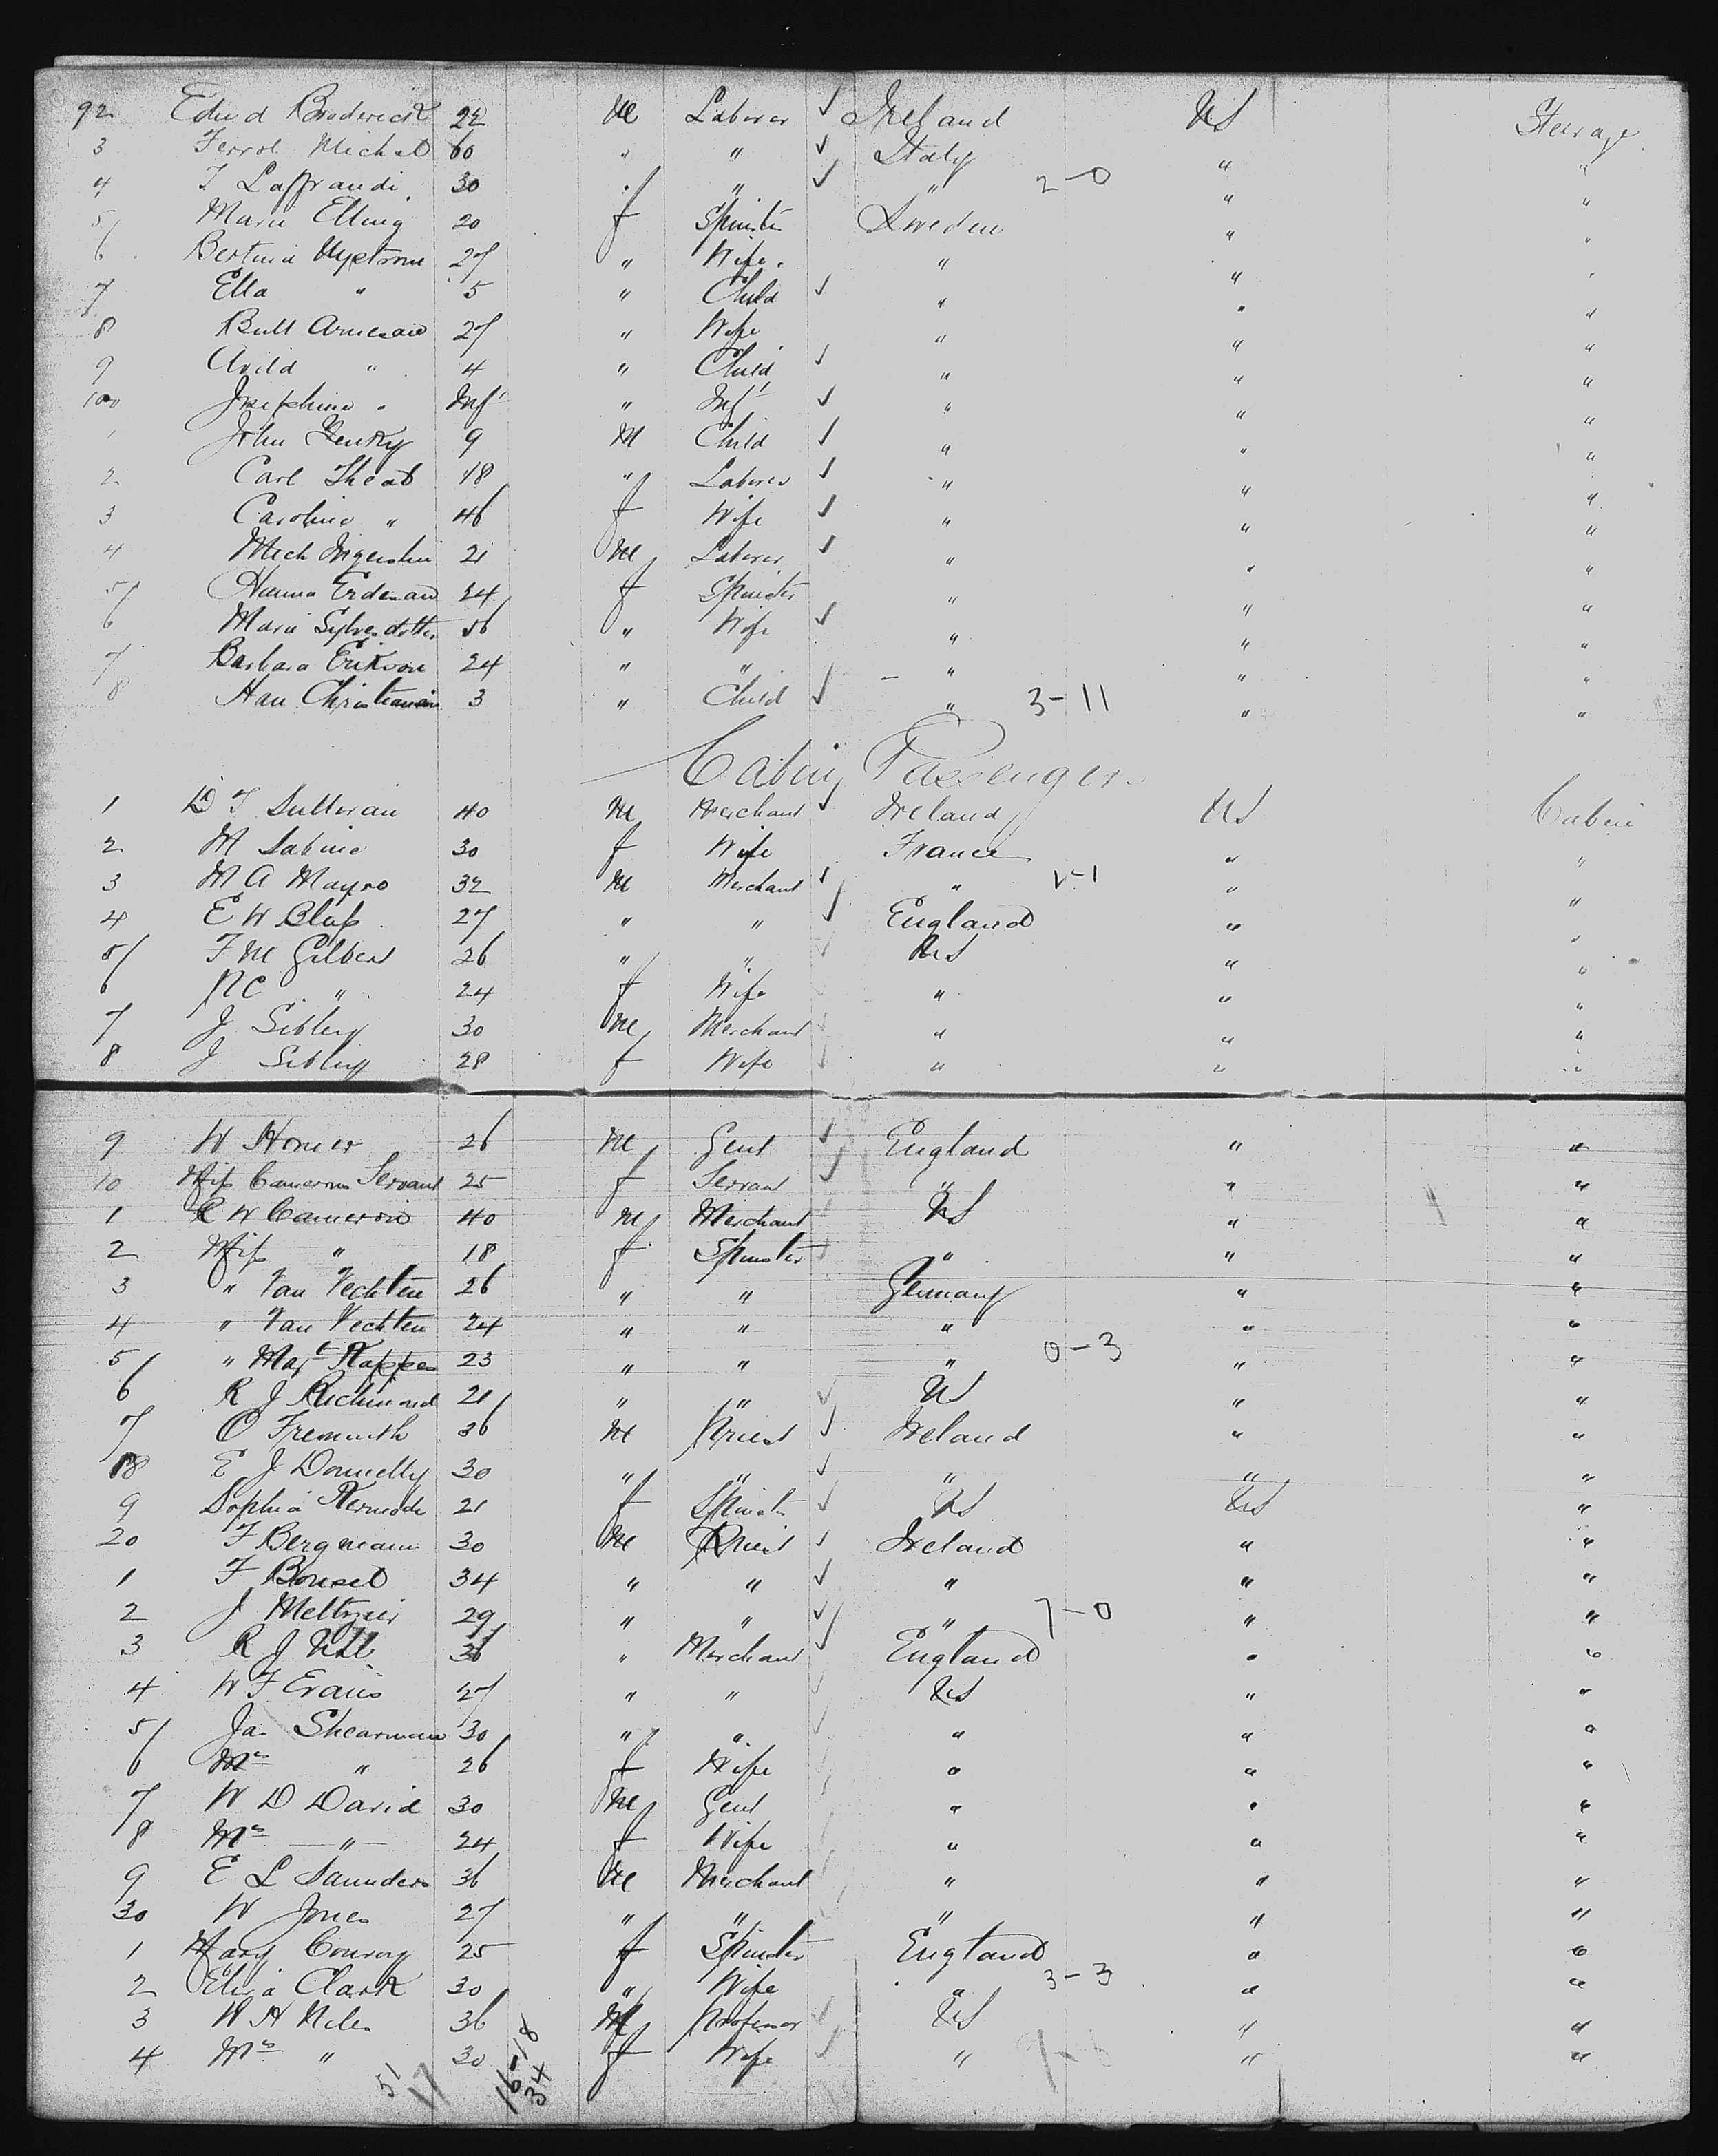 92 Edwd Broderick 22 M Laborer ✓ Ireland US Steerage
3 Ferrol Michal 60 " " ✓ Italy " "
4 T Laffrandi 30 " " ✓ " 2-0 " "
5 Marie Elling 20 f Spinster Sweden " "
6 27 " Wife " " "
7 Ella " 5 " Child ✓ " " "
8 27 " Wife " " "
9 " 4 " Child ✓ " " "
100 Josephine " Inft " Inft ✓ " " "
1 John 9 M Child ✓ " " "
2 Carl 18 " Laborer ✓ " " "
3 Caroline " 46 f Wife ✓ " " "
4 Mich 21 M Laborer ✓ " " "
5 Hanna 24 f Spinster " " "
6 Maria " Wife ✓ " " "
7 Barbara Erikson 24 " " " " "
8 Han Christiansin 3 " Child ✓ " 3-11 " "
Cabin Passengers
1 D T Sullivan 40 M Merchant ✓ Ireland US Cabin
2 M Sabine 30 f Wife France " "
3 M A Mayro 32 M Merchant ✓ " 1-1 " "
4 E W 27 " " ✓ England " "
5 F M Gilbert 26 " " ✓ US " "
6 " 24 f Wife " " "
7 J Sibley 30 M Merchant ✓ " " "
8 J Sibley 28 f Wife ✓ " " "
9 W Homer 26 M Gent ✓ England " "
10 Miss Camerons Servant 25 f Servant ✓ " " "
1 R W Cameron 40 M Merchant US " "
2 Miss " 18 f Spinster ✓ " " "
3 " Van Vechten 26 " " Germany " "
4 " Van Vechten 24 " " " " "
5 " Magt 23 " " " 0-3 " "
6 R J Richmond 21 " " ✓ US " "
7 O 36 M Priest ✓ Ireland " "
18 E J Donnelly 30 " " ✓ " " "
9 Sophia 21 f Spinster ✓ US US "
20 F Bergmann 30 M Priest ✓ Ireland " "
1 F 34 " " ✓ " " "
2 J 29 " " ✓ " 7-0 " "
3 R J 36 " Merchant ✓ England " "
4 W F Evans 27 " " ✓ US " "
5 Jas Shearman 30 " " ✓ " " "
6 Mrs " 26 f Wife " " "
7 W D David 30 M Gent " " "
8 Mrs " 24 f Wife " " "
9 E L Saunders 36 M Merchant " " "
30 W Jones 27 " " " " "
1 Mary Conroy 25 f Spinster England " "
2 Eliza Clark 30 " Wife " 3-3 " "
3 W H Niles 36 M Professor ✓ US " "
4 Mrs " 30 f Wife ✓ " " "
51 17 16-18
34